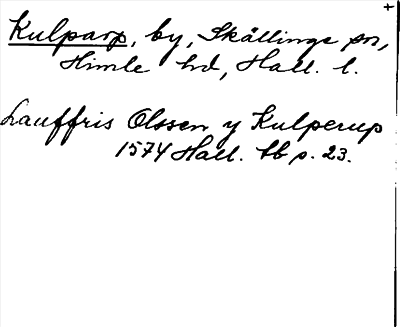 +
Kulparp, by, Skällinge sn,
Himle hd, Hall. l.
Lauffris Olssen y Kulperup
1574 Hall. tb p. 23.